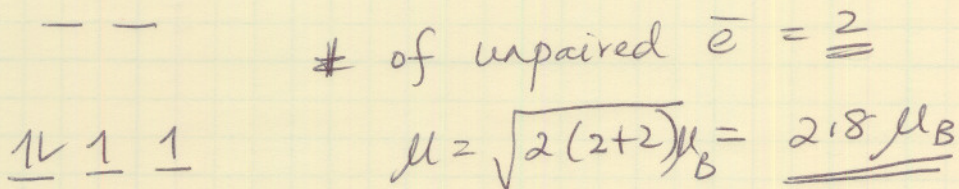 # of unpaired e̅ = 2
1L 1 1 μ = √2(2+2) μ_B = 2.8 μ_B